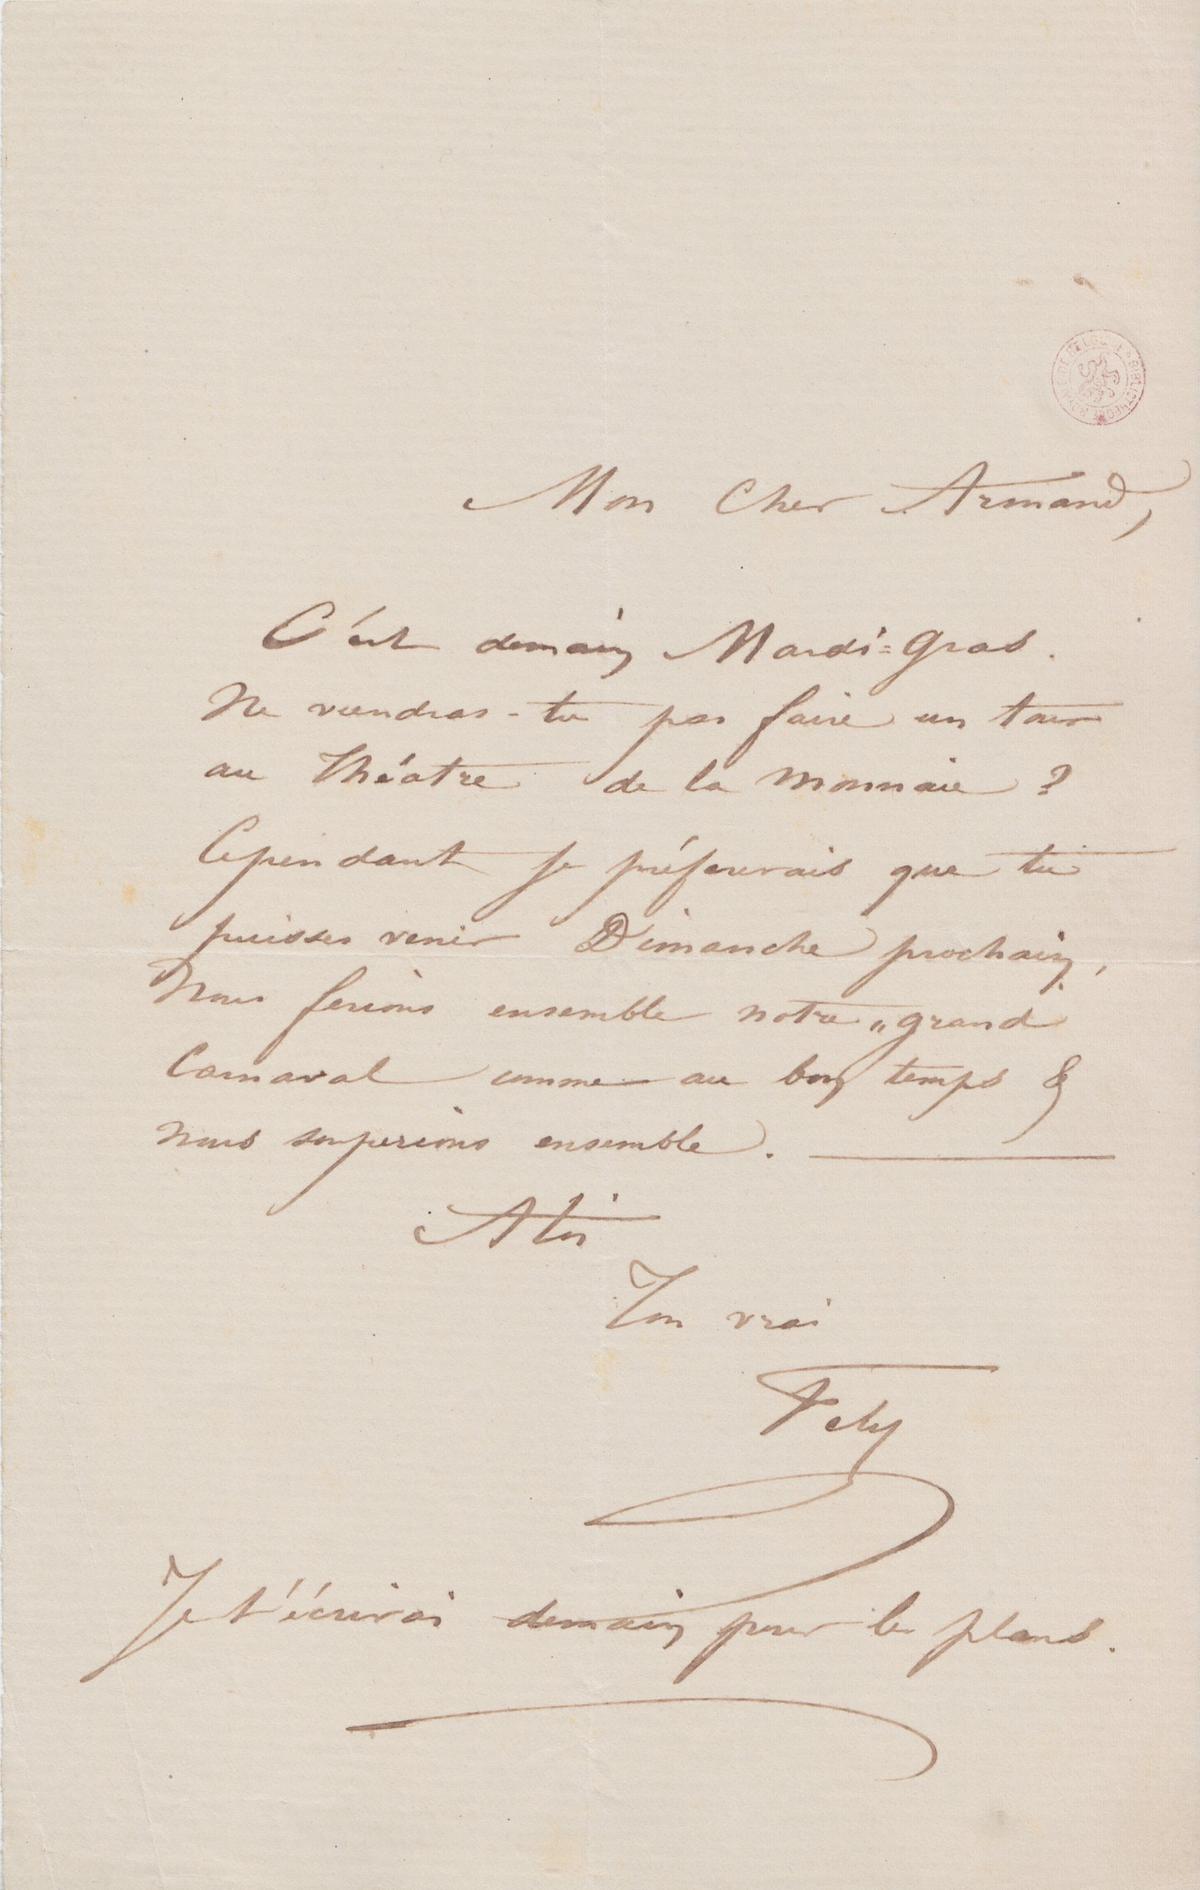 Mon Cher Armand,
C'est demain Mardi=Gras.
Ne viendras-tu pas faire un tour
au Théatre de la Monnaie ?
Cependant je préfererais que tu
puisses venir Dimanche prochain,
Nous ferions ensemble notre „grand
Carnaval comme au bon temps &
nous souperions ensemble.
A toi
Ton vrai
Fély
Je t'écrirai demain pour les plans.